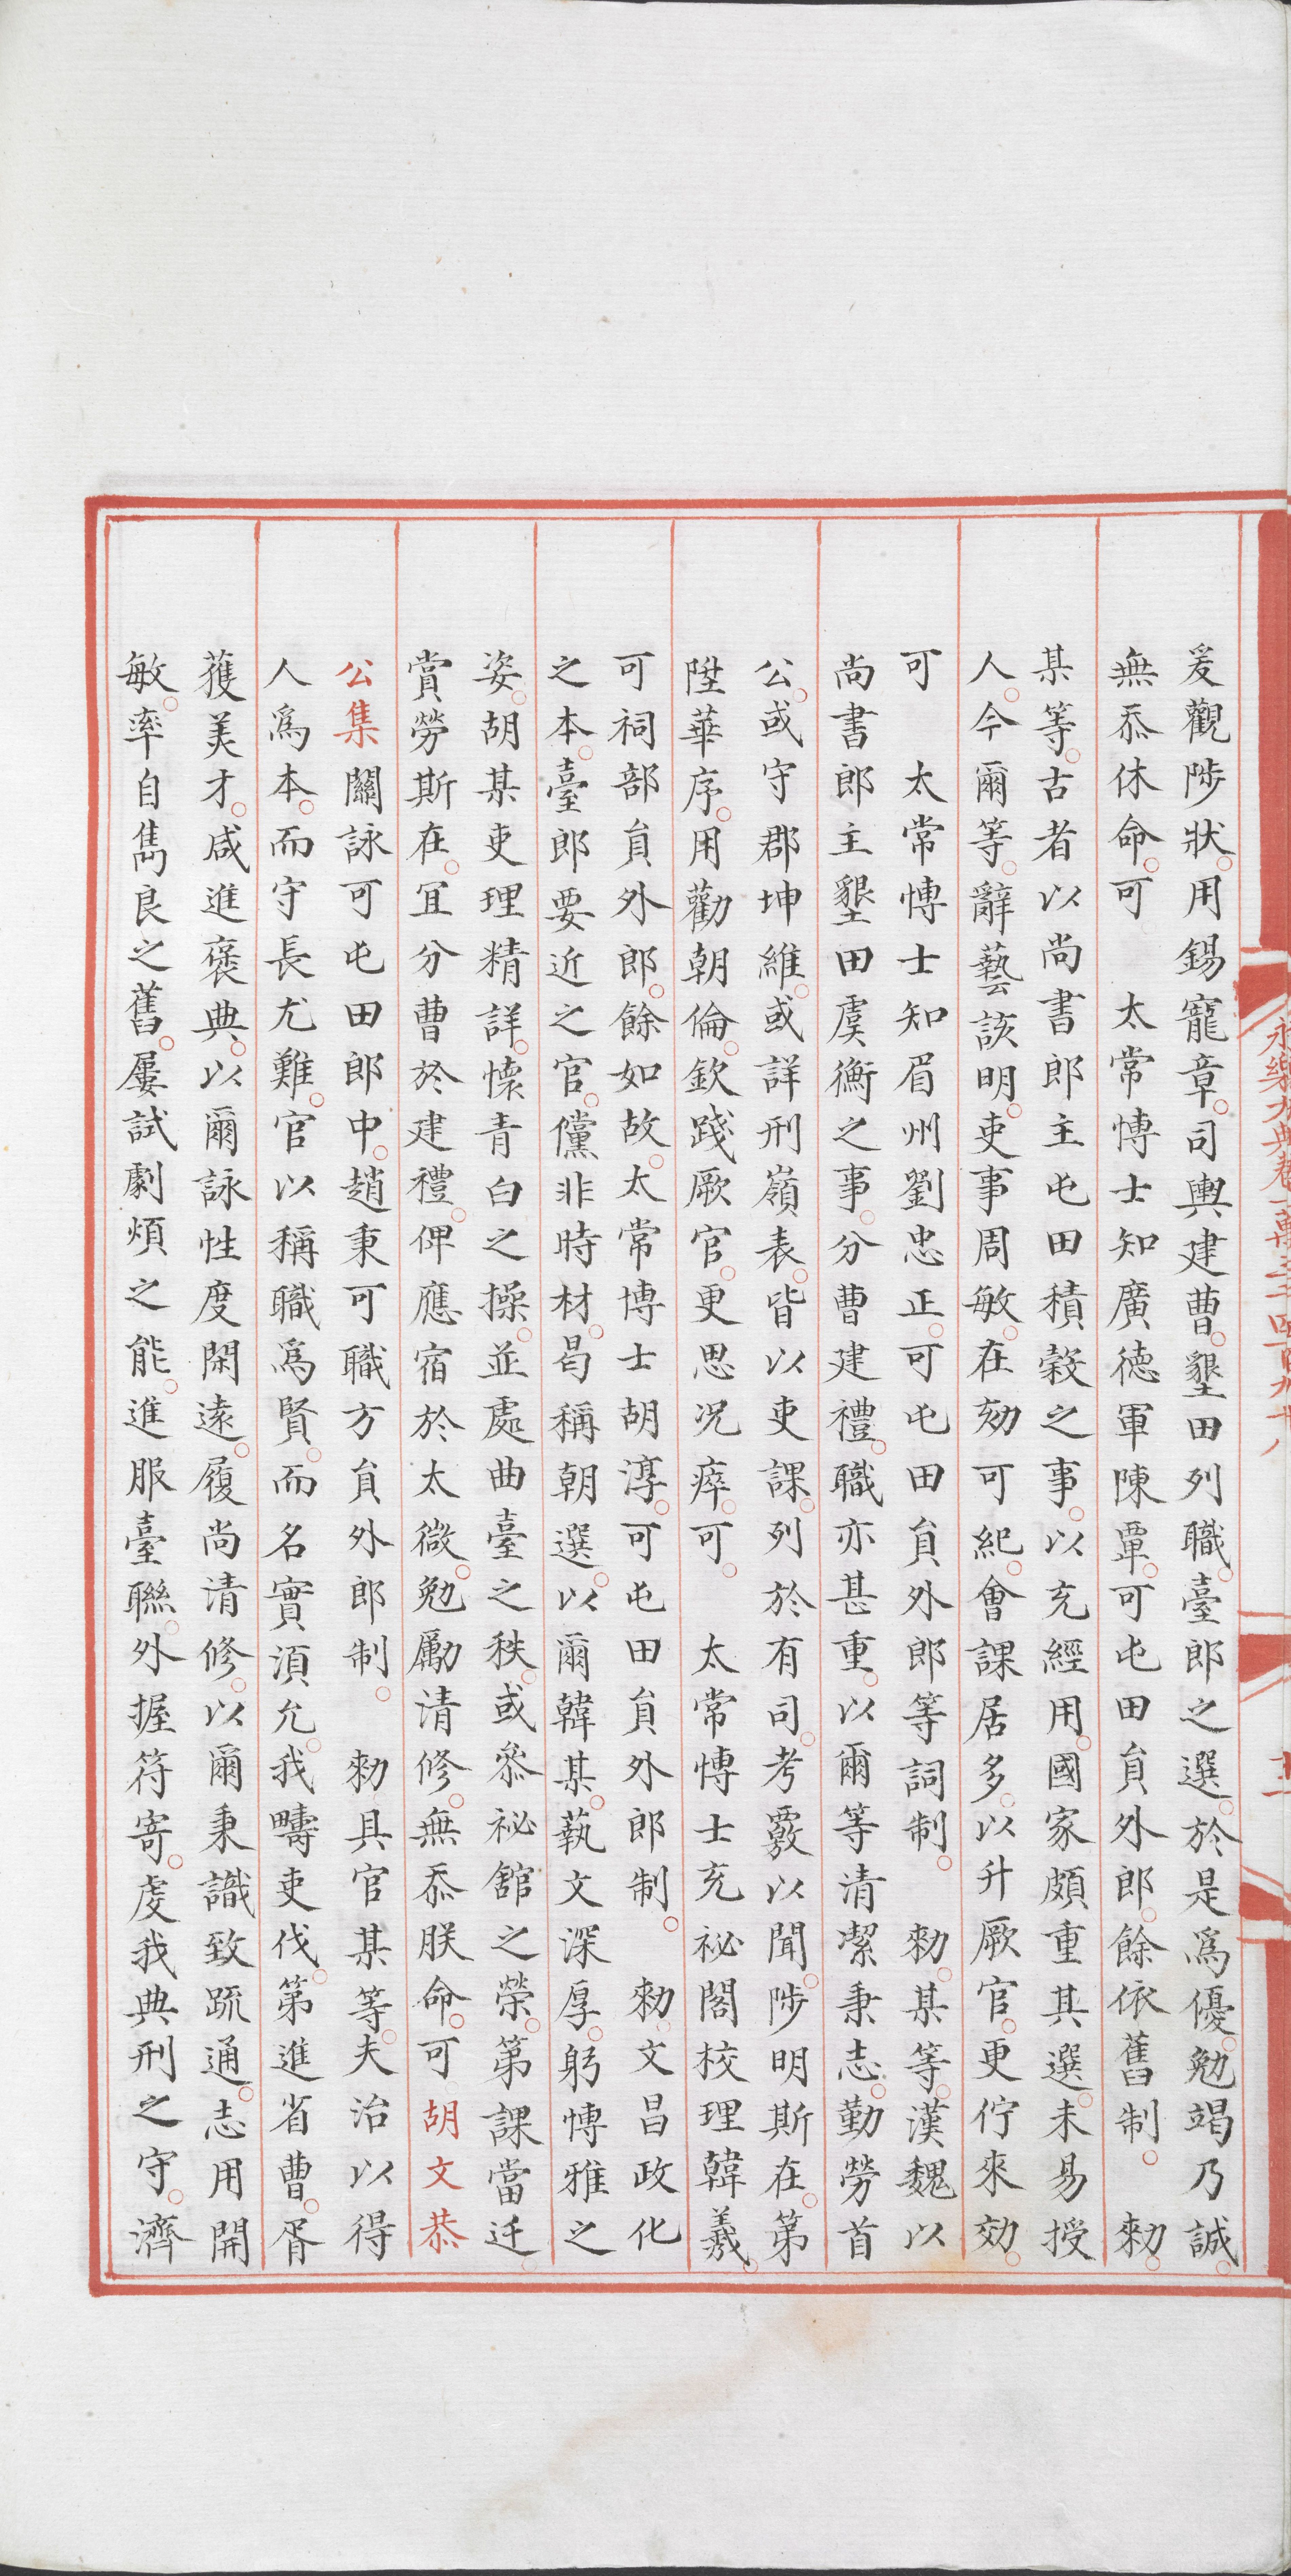 永樂大典卷一萬三千四百九十八
十一
爰觀陟狀。用錫寵章。司輿建曹。墾田列職。臺郎之選。於是爲優。勉竭乃誠。
無忝休命。可　太常博士知廣德軍陳覃。可屯田負外郎。餘依舊制。　勑。
某等。古者以尚書郎主屯田積穀之事。以充經用。國家頗重其選。未易授
人。今爾等。辭藝該明。吏事周敏。在効可紀。會課居多。以升厥官。更佇來効。
可　太常博士知眉州劉忠正。可屯田負外郎等詞制。　勑。某等。漢魏以
尚書郎主墾田虞衡之事。分曹建禮。職亦甚重。以爾等清潔秉志。勤勞首
公。或守郡坤維。或詳刑嶺表。皆以吏課。列於有司。考覈以聞。陟明斯在。第
陞華序。用勸朝倫。欽踐厥官。更思况瘁。可。　太常博士充祕閣校理韓羲。
可祠部負外郎。餘如故。太常博士胡淳。可屯田負外郎制。　勑。文昌政化
之本。臺郎要近之官。儻非時材。曷稱朝選。以爾韓某。執文深厚。躬博雅之
姿。胡某吏理精詳。懷青白之操。並處曲臺之秩。或叅祕舘之榮。第課當迁。
賞勞斯在。冝分曹於建禮。俾應宿於太微。勉勵清修。無忝朕命。可　胡文恭
公集關詠可屯田郎中。趙秉可職方負外郎制。　勑具官某等。夫治以得
人爲本。而守長尤難。官以稱職爲賢。而名實湏允。我疇吏伐。第進省曹。胥
獲美才。咸進褒典。以爾詠性度閑遠。履尚清修。以爾秉識致疏通。志用開
敏。率自雋良之舊。屢試劇煩之能。進服臺聯。外握符寄。虔我典刑之守。濟